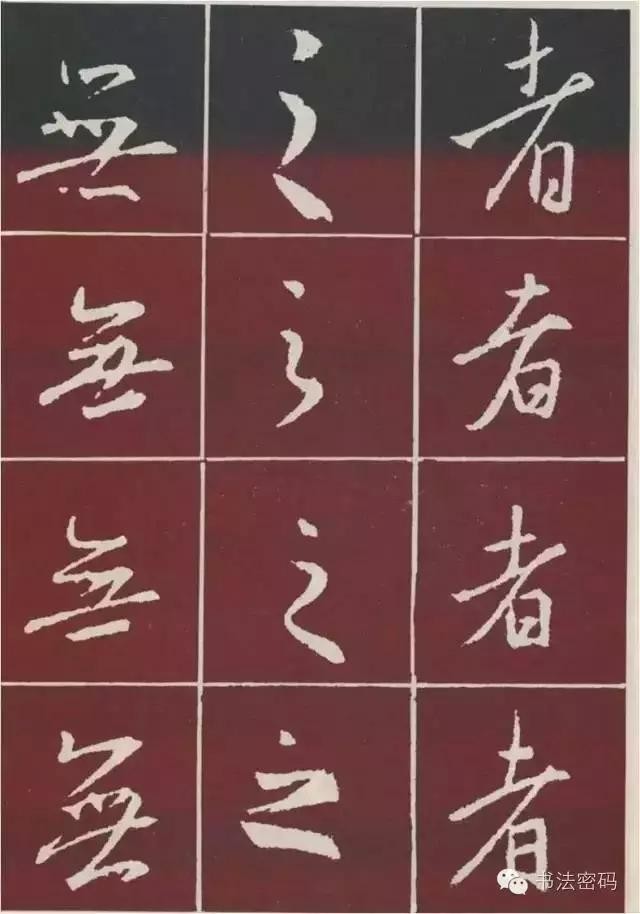 者
者
者
者
之
之
之
之
無
無
無
無
书法密码